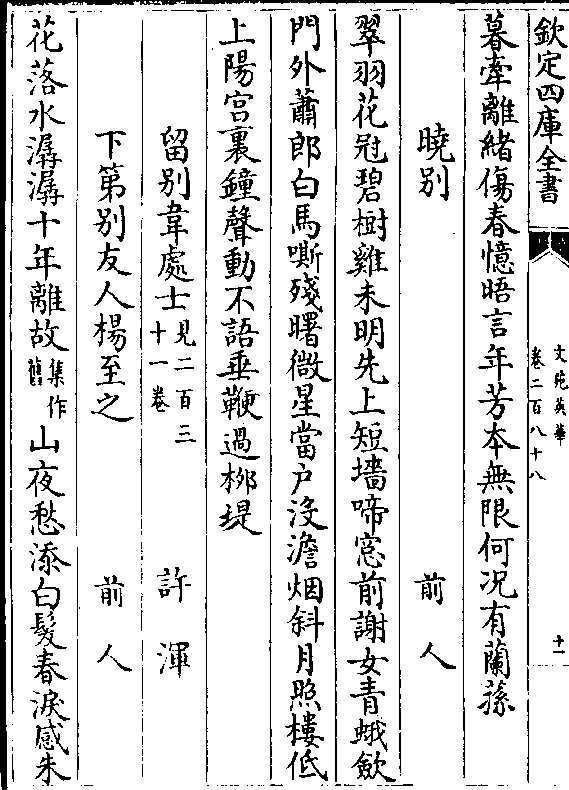 欽定四庫全書
文苑英華
卷二百八十八
十一
暮牽離緒傷春憶晤言年芳本無限何况有蘭蓀
曉别 前人
翠羽花冠碧樹雞未明先上短墻啼窓前謝女青蛾歛
門外蕭郎白馬嘶殘曙微星當户没澹烟斜月照樓低
上陽宫裏鐘聲動不語垂鞭過桞堤
留别韋處士見二百三十一卷 許渾
下第别友人楊至之 前人
花落水潺潺十年離故集作舊山夜愁添白髪春淚感朱